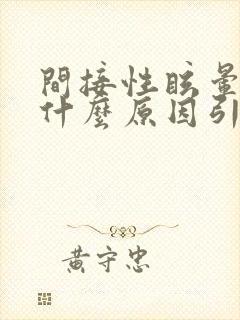 間接性眩暈
什麼原因引
黃守忠